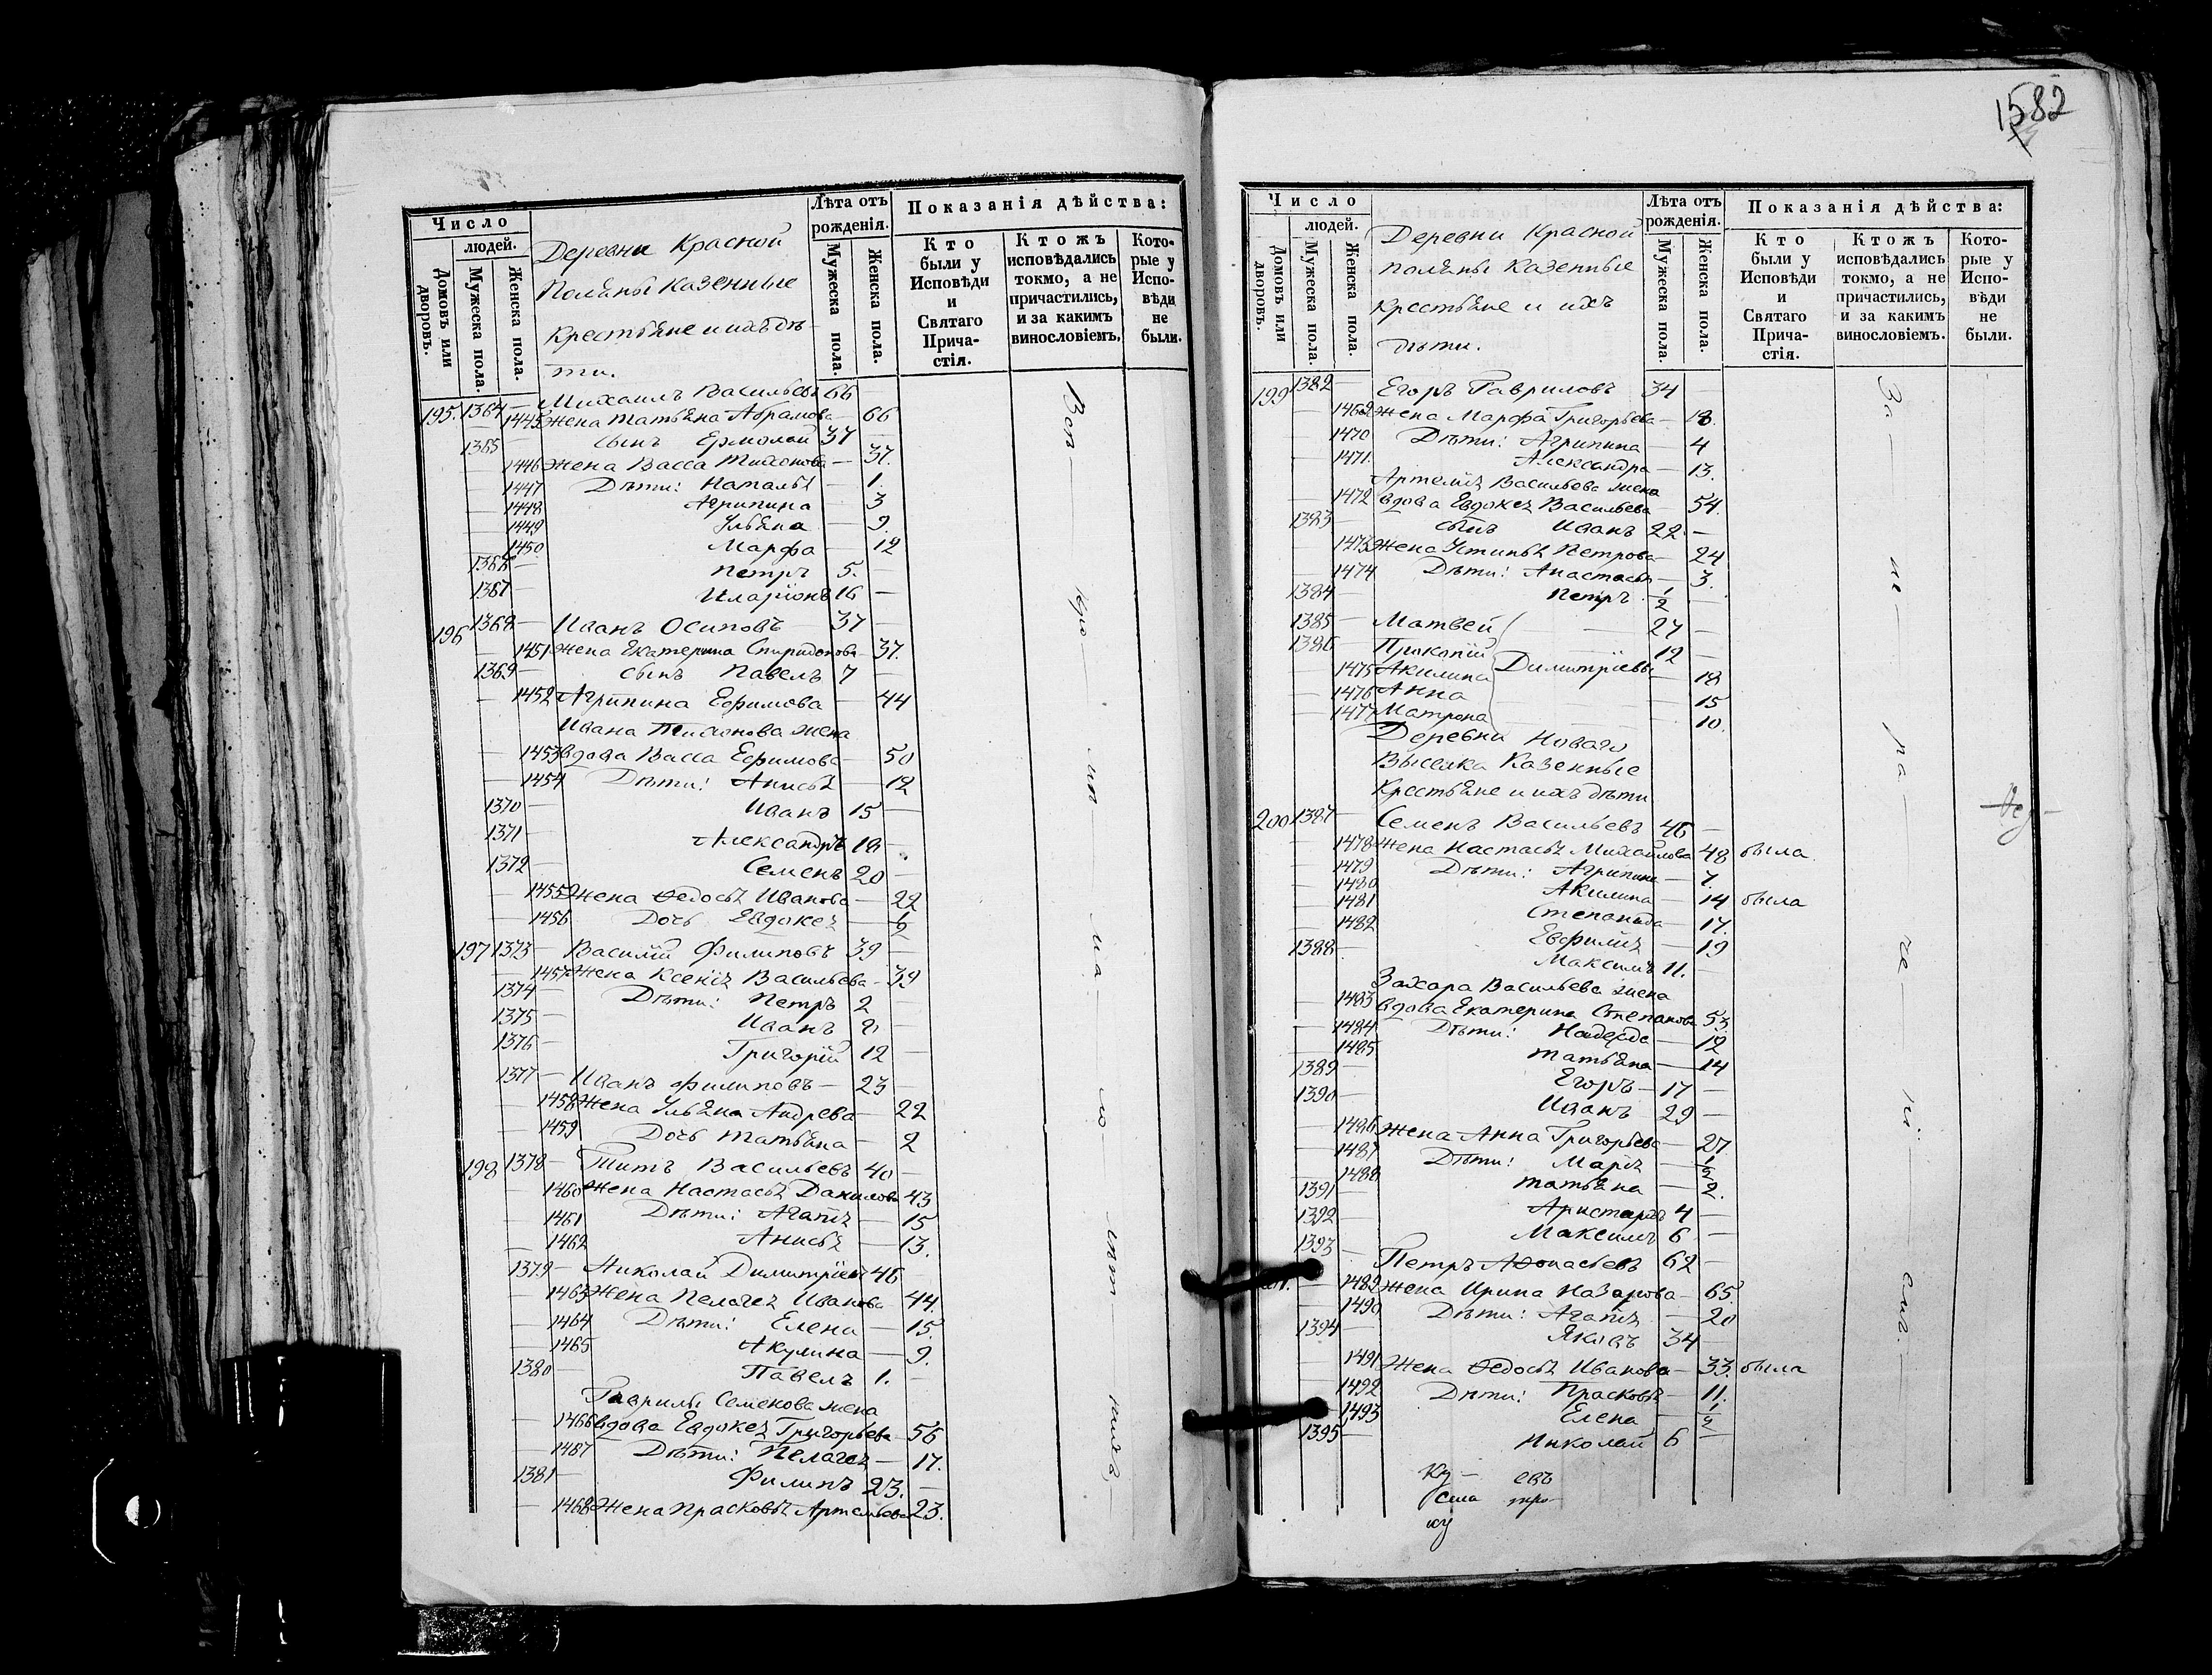 1582
Число
людей.
Домовъ или дворовъ.
Мужеска пола.
Женска пола.
Деревни Красной
Поляны Казенные
Крестьяне и ихъ дѣ-
ти.
Лѣта отъ рожденія.
Мужеска пола.
Женска пола.
Показанія дѣйства:
Кто были у Исповѣди и Святаго Прича- стія.
Ктожъ исповѣдались токмо, а не причастились, и за какимъ винословіемъ.
Кото- рые у Испо- вѣди не были.
195. 1364 — Михаилъ Васильевъ 66
— 1445 Жена Татьяна Абрамова — 66
1365 — сынъ Ермолай 37
— 1446 Жена Васса Тихонова — 37.
— 1447 Дѣти: Наталья — 1.
— 1448 Агрипина — 3
— 1449 Ульяна — 9.
— 1450 Марфа — 12
1366 — Петръ 5. —
1367 — Иларіонъ 16 —
196 1368 — Иванъ Осиповъ 37 —
— 1451 Жена Екатерина Спиридонова — 37.
1369 — сынъ Павелъ 7 —
— 1452 Агрипина Ефимова — 44
Ивана Тихонова жена
— 1453 вдова Васса Ефимова — 50
— 1454 Дѣти: Анисья — 12
1370 — Иванъ 15 —
1371 — Александръ 18 —
1372 — Семенъ 20 —
— 1455 Жена Ѳедосья Иванова — 22
— 1456 Дочь Евдокея — 1/2
197 1373 — Василій Филиповъ 39 —
— 1457 Жена Ксенія Васильева — 39
1374 — Дѣти: Петръ 2 —
1375 — Иванъ 8 —
1376 — Григорій 12 —
1377 — Иванъ Филиповъ — 23 —
— 1458 Жена Ульяна Андрева — 22
— 1459 Дочь Татьяна — 2
198 1378 — Титъ Васильевъ 40 —
— 1460 Жена Настасья Данилова 43
— 1461 Дѣти: Агапія — 15
— 1462 Анисья — 13.
1379 — Николай Димитріевъ 46 —
— 1463 Жена Пелагея Иванова 44.
— 1464 Дѣти: Елена — 15.
— 1465 Акулина — 9.
1380 — Павелъ 1. —
Гаврилы Семенова жена
— 1466 вдова Евдокея Григорьева — 56
— 1467 Дѣти: Пелагея — 17.
1381 — Филипъ 23. —
— 1468 Жена Прасковья Артемьева 23.
Число
людей.
Домовъ или дворовъ.
Мужеска пола.
Женска пола.
Деревни Красной
поляны Казенные
Крестьяне и ихъ
дѣти.
Лѣта отъ рожденія.
Мужеска пола.
Женска пола.
Показанія дѣйства:
Кто были у Исповѣди и Святаго Прича- стія.
Ктожъ исповѣдались токмо, а не причастились, и за какимъ винословіемъ.
Кото- рые у Испо- вѣди не были.
199 1382 — Егоръ Гавриловъ 34 —
— 1469 Жена Марфа Григорьева —
— 1470 Дѣти: Агрипина — 4
— 1471. Александра — 13.
Артемія Васильева жена
— 1472 вдова Евдокея Васильева — 54.
1383 — сынъ Иванъ 22. —
— 1473 Жена Устинья Петрова — 24
— 1474 Дѣти: Анастасья — 3.
1384 — Петръ 1/2 —
1385 — Матвей 27 —
1386 Прокопій 12 —
— 1475 Акилина Димитріевы — 18
— 1476 Анна — 15
— 1477 Матрона — 10.
Деревни Новаго
Выселка Казенные
Крестьяне и ихъ дѣти
200 1387 — Семенъ Васильевъ 46 —
— 1478 Жена Настасья Михайлова 48 была.
— 1479 Дѣти: Агрипина — 7.
— 1480 Акилина — 14 была
— 1481 Степанида — 17.
— 1482 Евфимія — 19
1388 — Максимъ 11. —
Захара Васильева жена
— 1483 вдова Екатерина Степанова 53.
— 1484 Дѣти: Надежда — 12
— 1485 Татьяна — 14
1389 — Егоръ — 17 —
1390 — Иванъ 29 —
— 1486 Жена Анна Григорьева — 27
— 1487 Дѣти: Марія — 1/2
— 1488 Татьяна — 2.
1391 — Аристархъ 4 —
1392 — Максимъ 6 —
1393 — Петръ Аѳонасьевъ 62 —
— 1489 Жена Ирина Назарова — 65.
— 1490 Дѣти: Агапія — 20
1394 — Яковъ 34 —
— 1491 Жена Ѳедосья Иванова — 33. была
— 1492 Дѣти: Прасковья — 11.
— 1493 Елена — 1/2
1395 — Николай 6 —